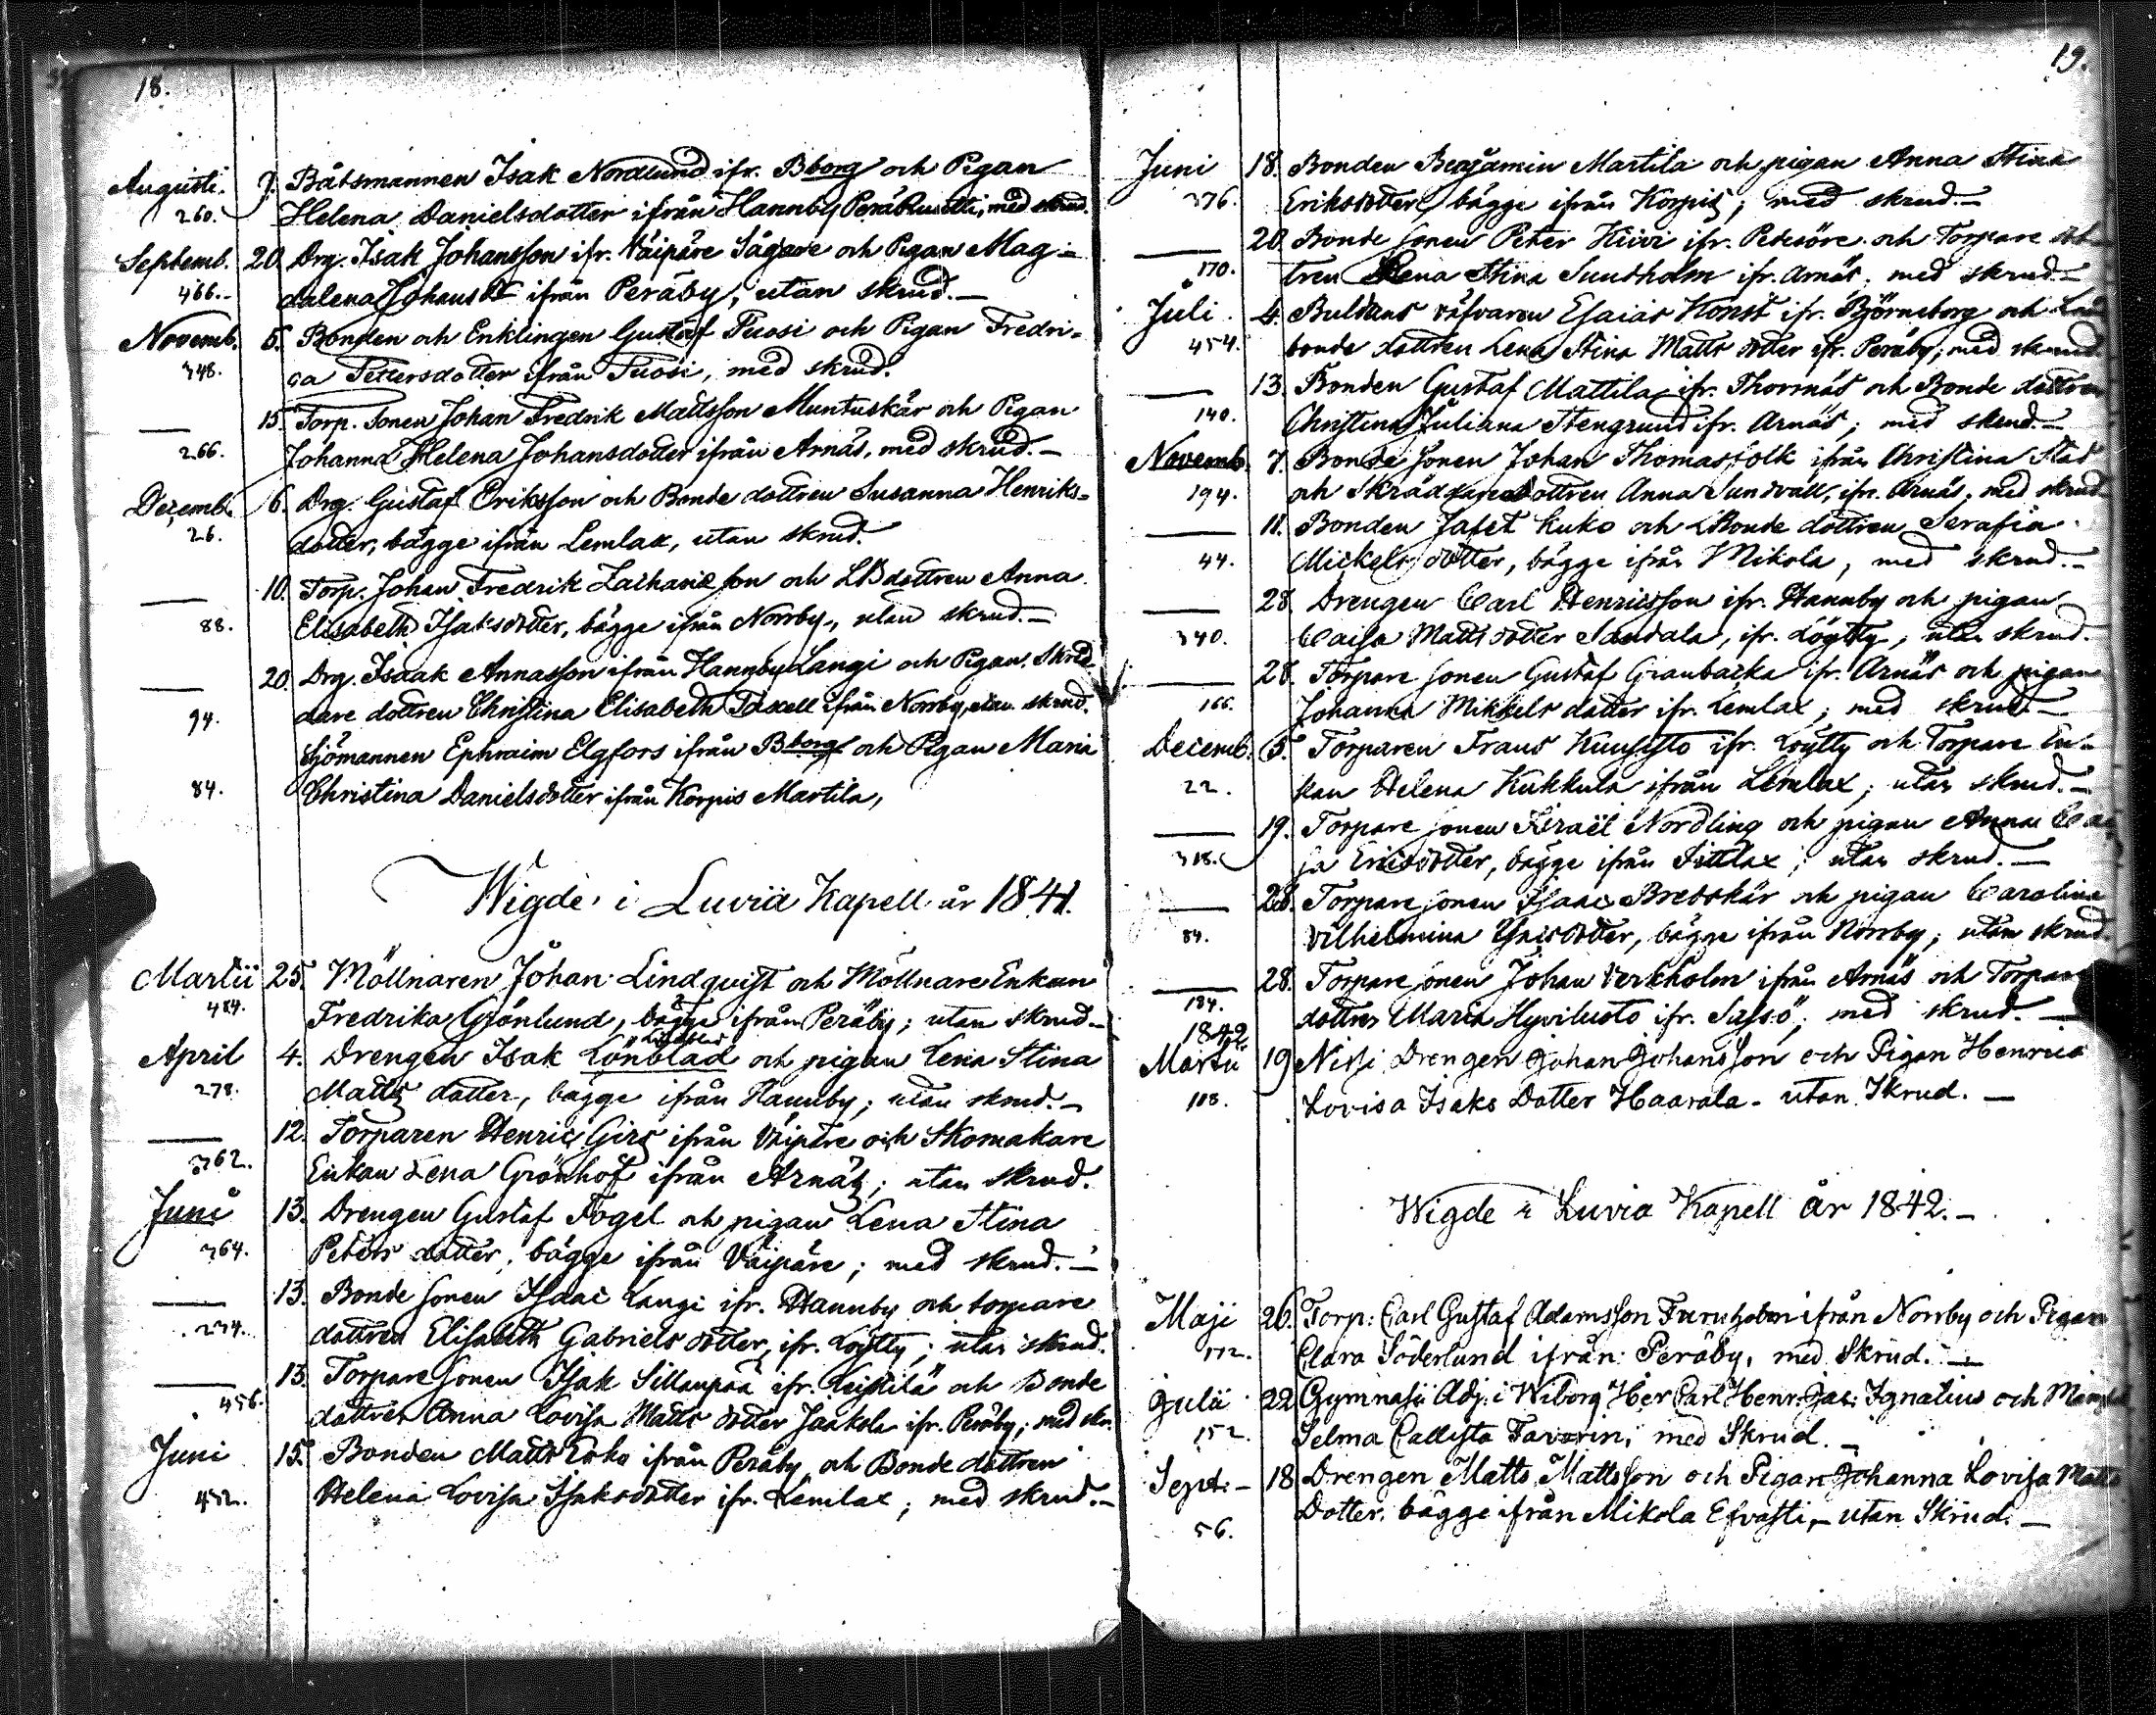 18.
Augusti. 7. Båtsmannen Isak Nordlund ifr. Bborg och Pigan
260. Helena Danielsdotter ifrån Hannby med skrud.
Septemb. 20. Drg. Isak Johansson ifr. Väipäre Sågare och Pigan Mag-
466.- dalena Johansdr ifrån Peräby, utan skrud.-
Novemb. 5. Bonden och Enklingen Gustaf Tuosi och Pigan Fredri-
348. ca Pettersdotter ifrån Tuosi, med skrud.
15. Torp. Sonen Johan Fredrik Mattsson Muntuskär och Pigan
266. Johanna Helena Johansdotter ifrån Arnäs, med skrud.-
Decemb. 6. Drg. Gustaf Eriksson och Bonde dottren Susanna Henriks-
26. dotter, bägge ifrån Lemlax, utan skrud.
10. Torp. Johan Fredrik Zachariæ son och LBdottren Anna
88. Elisabeth Isaksdotter, bägge ifrån Norrby, utan skrud.-
20. Drg. Isaak Annasson ifrån Hannby Langi och Pigan Skräd-
94. dare dottren Christina Elisabeth Taxell ifrån Norrby, utan skrud.
Sjömannen Ephraim Elgfors ifrån Bborg och Pigan Maria
84. Christina Danielsdotter ifrån Korpis Martila,
Wigde i Luvia Kapell år 1841.
Martii 25. Möllnaren Johan Lindqvist och Möllnare Enkan
484. Fredrika Grönlund, bägge ifrån Peräby; utan skrud.-
April 4. Drengen Isak Lönblad och pigan Lena Stina
278. Matts dotter, bägge ifrån Hannby; utan skrud.-
12. Torparen Henric Girs ifrån Väipäre och Skomakare
362. Enkan Lena Grönhof ifrån Arnäs; utan skrud.
Juni 13. Drengen Gustaf Fogel och pigan Lena Stina
364. Peters dotter, bägge ifrån Väipäre; med skrud.-
13. Bonde sonen Isaac Langi ifr. Hannby och torpare
234. dottren Elisabeth Gabriels dotter, ifr. Löytty; utan skrud.
13. Torpare sonen Isak Sillanpää ifr. Leistilä och Bonde
456. dottren Anna Lovisa Matts dotter Jaakola ifr. Peräby; med skr.
Juni 15. Bonden Matts Erko ifrån Peräby och Bonde dottren
452. Helena Lovisa Isaksdotter ifr. Lemlax; med skrud.-
19.
Juni 18. Bonden Benjamin Martila och pigan Anna Stina
376. Eriksdotter, bägge ifrån Korpis; med skrud.-
20. Bonde sonen Peter Hiivi ifr. Pedesöre och Torpare dot
170. tren Lena Stina Sundholm ifr. Arnäs, med skrud.-
Juli 4. Buldansväfvaren Esaias Konst ifr. Björneborg och
454. bonde dottren Lena Stina Matts dotter ifr. Peräby; med skrud
13. Bonden Gustaf Mattila ifr. Thornäs och Bonde dottren
140. Christina Juliana Stengrund ifr. Arnäs; med skrud.-
Novemb. 7. Bonde sonen Johan Thomasfolk ifrån Christina Stad
194. och Skräddare dottren Anna Sundvall, ifr. Arnäs, med skrud
11. Bonden Jafet Kuko och LBonde dottren Serafia
44. Mickels dotter, bägge ifrån Mikola, med skrud.-
28. Drengen Carl Henricsson ifr. Hannby och pigan
340. Caisa Matts dotter Sandala, ifr. Löytty; utan skrud.
28. Torpare sonen Gustaf Granbacka ifr. Arnäs och pigan
166. Johanna Mikkels dotter ifr. Lemlax; med skrud.-
Decemb. 5. Torparen Frans Kuusisto ifr. Löytty och Torpare En-
22. kan Helena Kukkula ifrån Lemlax; utan skrud.-
19. Torpare sonen Israël Nordling och pigan Anna Cai
318. sa Ericsdotter, bägge ifrån Sittlax; utan skrud.-
28. Torpare sonen Isaac Bredskär och pigan Carolina
84. Vilhelmina Isacsdotter, bägge ifrån Norrby; utan skrud.
28. Torpare sonen Johan Verkholm ifrån Arnäs och Torpare
184. dottren Maria Hyvilusto ifr. Sassö; med skrud.-
1842
Martii 19 Drengen Johan Johansson och Pigan Henrica
108. Lovisa Isaks Dotter Haarala - utan Skrud.-
Wigde i Luvia Kapell år 1842.-
Maji 26. Torp: Carl Gustaf Adamsson Furuholm ifrån Norrby och Pigan
112. Clara Söderlund ifrån Peräby, med Skrud.-
Julii 22 Gymnasii Adj. i Wiborg Her Carl Henr. Jac: Ignatius och
152. Selma Callista Favorin, med Skrud.-
Sept:- 18 Drengen Matts Mattsson och Pigan Johanna Lovisa Matts
56. Dotter, bägge ifrån Mikola Efvasti,- utan Skrud.-